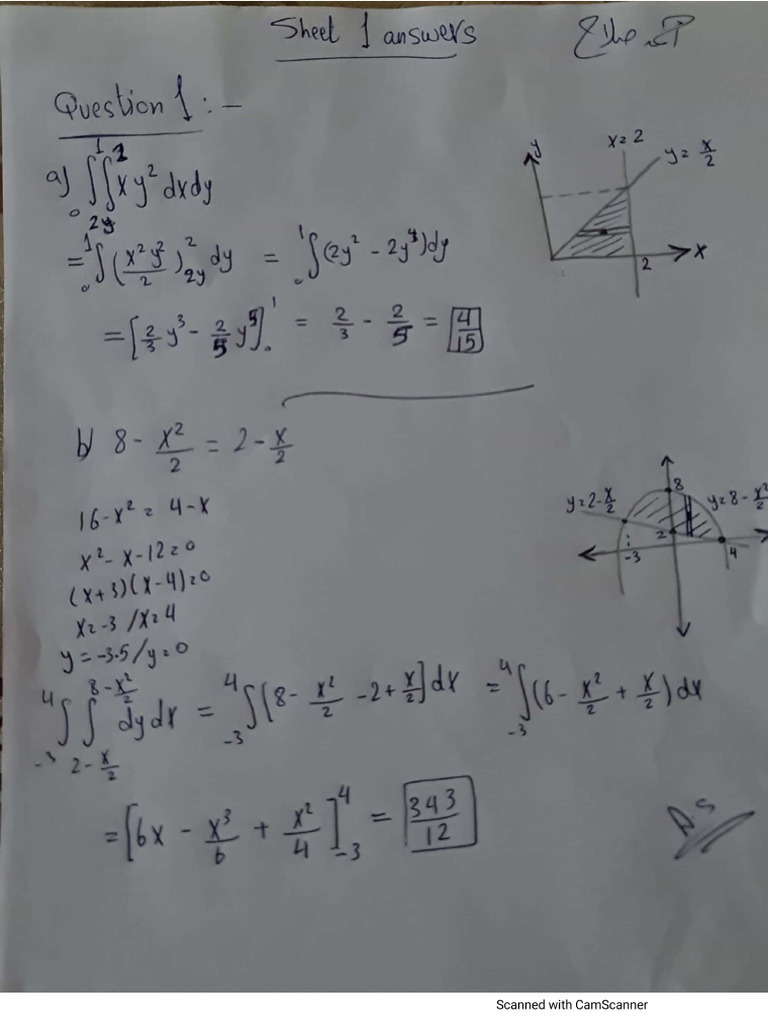 Sheet 1 answers
Question 1 : -
a) ₀∫¹ ∫_{2y}^{2} x y² dx dy
= ₀∫¹ (x² y² / 2)_{2y}^{2} dy = ₀∫¹ (2y² - 2y⁴) dy
= [2/3 y³ - 2/5 y⁵]₀¹ = 2/3 - 2/5 = 4/15
y
x = 2
y = x/2
2
x
b) 8 - x²/2 = 2 - x/2
16 - x² = 4 - x
x² - x - 12 = 0
(x+3)(x-4) = 0
x = -3 / x = 4
y = -3.5 / y = 0
y = 2 - x/2
8
y = 8 - x²
2
-3
4
₋₃∫⁴ ∫_{2 - x/2}^{8 - x²/2} dy dx = ₋₃∫⁴ [8 - x²/2 - 2 + x/2] dx = ₋₃∫⁴ (6 - x²/2 + x/2) dx
= [6x - x³/6 + x²/4]₋₃⁴ = 343/12
Scanned with CamScanner